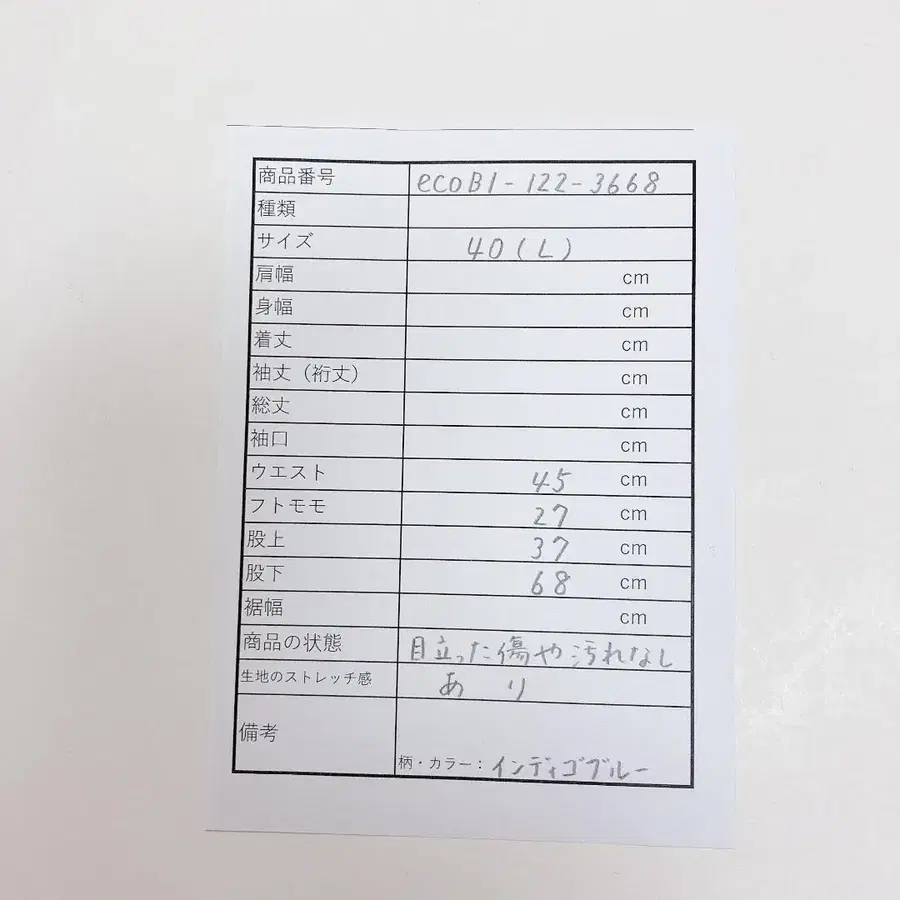 商品番号 ecoB1-122-3668
種類
サイズ 40(L)
肩幅 cm
身幅 cm
着丈 cm
袖丈（裄丈） cm
総丈 cm
袖口 cm
ウエスト 45 cm
フトモモ 27 cm
股上 37 cm
股下 68 cm
裾幅 cm
商品の状態 目立った傷や汚れなし
生地のストレッチ感 あり
備考
柄・カラー：インディゴブルー